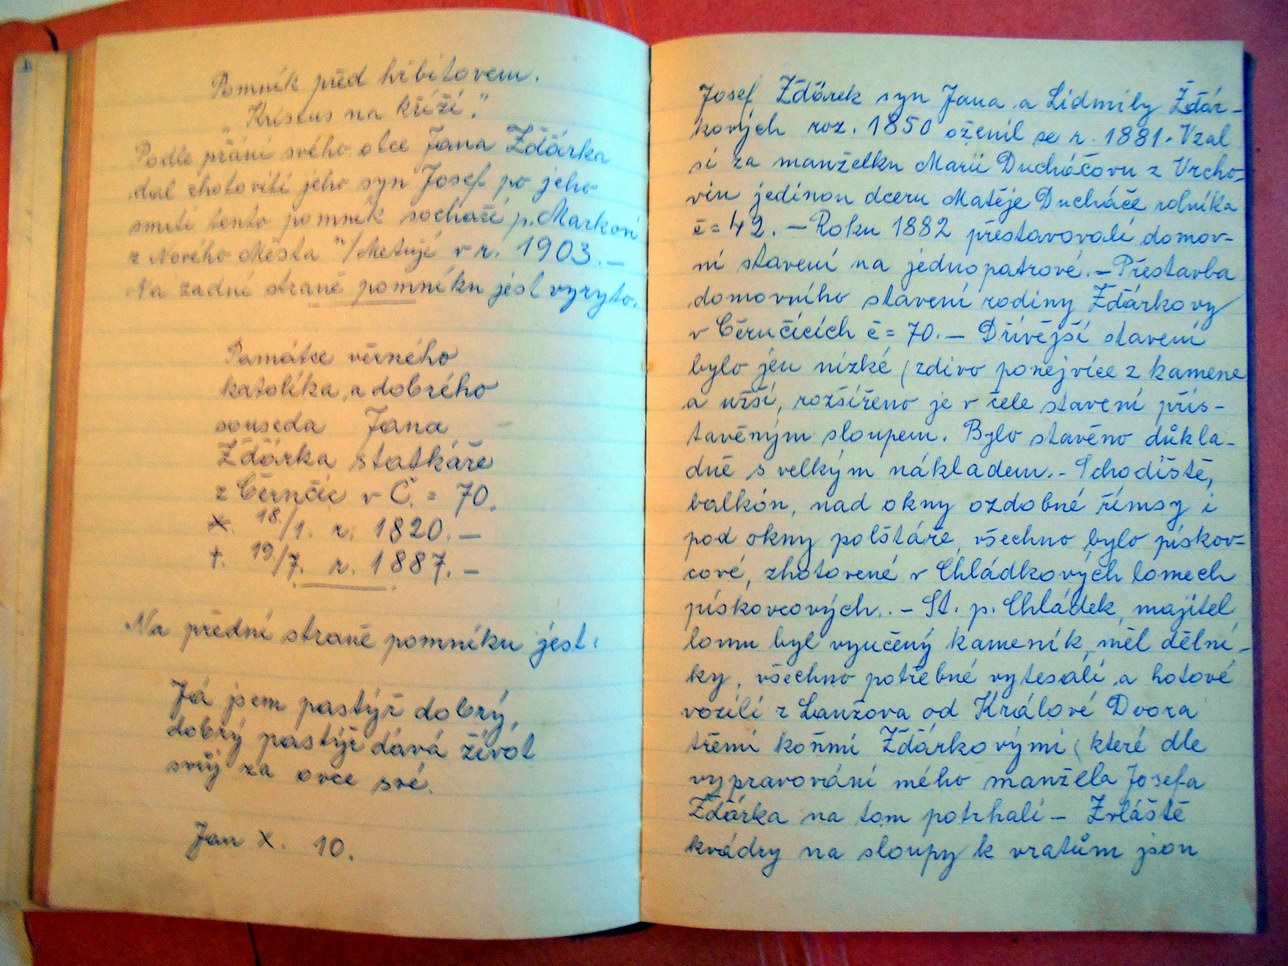 Pomník před hřbitovem.
„Kristus na kříži."
Podle přání svého otce Jana Žďárka
dal zhotoviti jeho syn Josef po jeho
smrti tento pomník sochaři p. Markovi
z Nového Města n/Metují v r. 1903. —
Na zadní straně pomníku jest vyryto.
Památce věrného
katolíka, a dobrého
souseda Jana
Žďárka statkáře
z Černčic v Č. = 70.
*. 18./1. r. 1820. —
†. 19/7. r. 1887. —
Na přední straně pomníku jest:
Já jsem pastýř dobrý,
dobrý pastýř dává život
svůj za ovce své.
Jan X. 10.
Josef Žďárek syn Jana a Lidmily Žďár-
kových roz. 1850 oženil se r. 1881. Vzal
si za manželku Marii Ducháčovu z Vrcho-
vin jedinou dceru Matěje Ducháče rolníka
č = 42. — Roku 1882 přestavovali domov-
ní stavení na jednopatrové. — Přestavba
domovního stavení rodiny Žďárkovy
v Černčicích č = 70. — Dřívější stavení
bylo jen nízké (zdivo ponejvíce z kamene
a užší, rozšířeno je v čele stavení přis-
tavěným sloupem. Bylo stavěno důkla-
dně s velkým nákladem. - Schodiště,
balkón, nad okny ozdobné římsy i
pod okny polštáře, všechno bylo pískov-
cové, zhotovené v Chládkových lomech
pískovcových. — St. p. Chládek, majitel
lomu byl vyučený kameník, měl dělní-
ky, všechno potřebné vytesali a hotové
vozili z Lanžova od Králové Dvora
třemi koňmi Žďárkovými (které dle
vypravování mého manžela Josefa
Žďárka na tom potrhali — Zvláště
kvádry na sloupy k vratům json